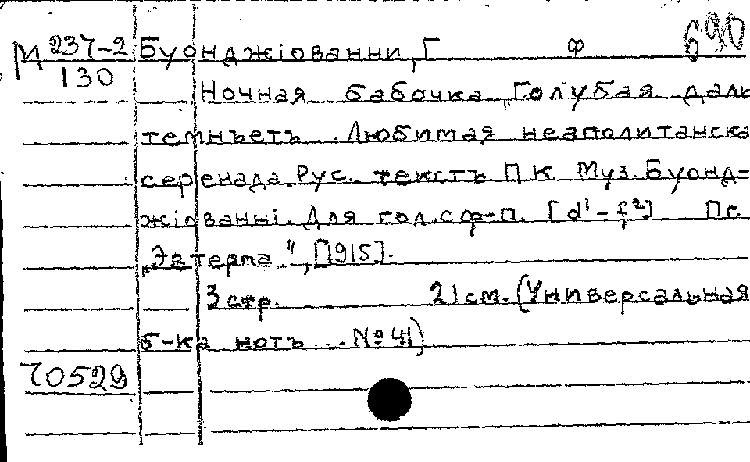 М 237-2 Буонджіованни, Г Ф 690
130
Ночная бабочка. Голубая даль
темнѣетъ. Любимая неаполитанска
серенада. Рус. текстъ П К Муз. Буонд-
жіованні. Для гол. с ф-п. [d¹-f²] Пг.
„Эвтерпа", [1915].
3 стр. 21 см. (Универсальная
б-ка нотъ .. № 41)
70529